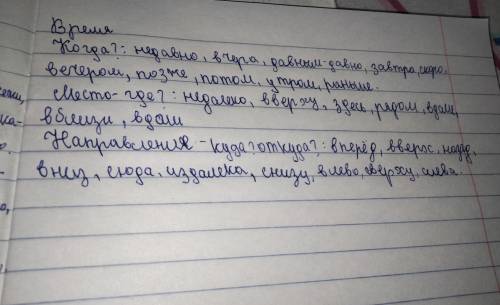 Время
Когда?: недавно, вчера, давным-давно, завтра, скоро,
вечером, позже, потом, утром, раньше.
Место-где?: недалеко, вверху, здесь, рядом, вдали,
ка- вблизи, вдали
Направления - куда? откуда?: вперёд, вверх, назад,
вниз, сюда, издалека, снизу, влево, сверху, слева.